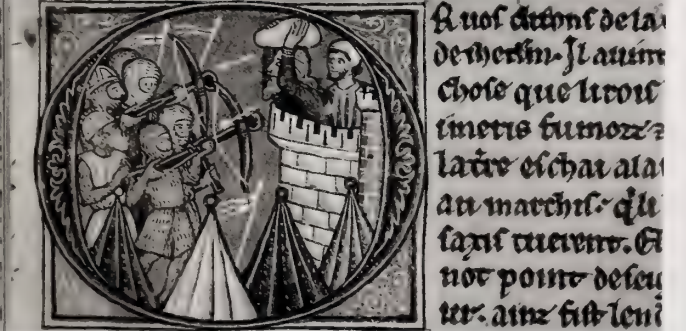 R uos dirons de la
de therun. Il auint
chose que li rois
imeris fu mort z
la tr̃e eschai a la
au marchis. q̃ li
saxis tuerent. Et
not point de seu
ur. ainz fist len